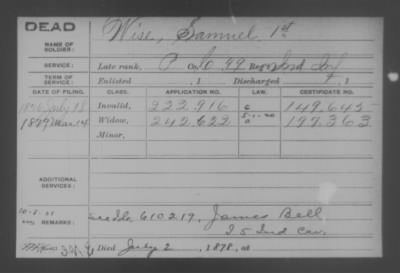 DEAD
NAME OF SOLDIER: Wise, Samuel 1st
SERVICE: Late rank, P Co. C 99 Reg't Ind Inf
TERM OF SERVICE: Enlisted , 1 Discharged , 1
DATE OF FILING. CLASS. APPLICATION NO. LAW. CERTIFICATE NO.
1876 July 18 Invalid, 222.916 149.645
1879 Mar 14 Widow, 242.622 197.363
Minor,
ADDITIONAL SERVICES:
REMARKS: 610219, James Bell
25 Ind Cav.
Died July 2, 1878, at